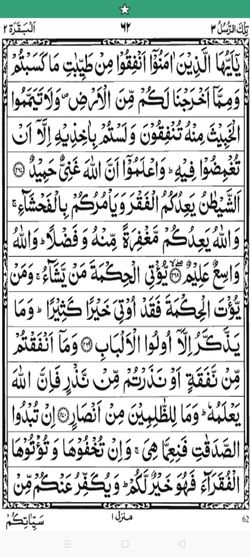 تِلْكَ الرُّسُلُ ٣ ٦٢ اَلْبَقَرَة ٢
يٰۤاَيُّهَا الَّذِيْنَ اٰمَنُوْۤا اَنْفِقُوْا مِنْ طَيِّبٰتِ مَا كَسَبْتُمْ
وَمِمَّاۤ اَخْرَجْنَا لَكُمْ مِّنَ الْاَرْضِ ۪ وَلَا تَيَمَّمُوا
الْخَبِيْثَ مِنْهُ تُنْفِقُوْنَ وَلَسْتُمْ بِاٰخِذِيْهِ اِلَّاۤ اَنْ
تُغْمِضُوْا فِيْهِ ؕ وَاعْلَمُوْۤا اَنَّ اللّٰهَ غَنِيٌّ حَمِيْدٌ ﴿۲۶۷﴾
اَلشَّيْطٰنُ يَعِدُكُمُ الْفَقْرَ وَيَاْمُرُكُمْ بِالْفَحْشَآءِ ۚ
وَاللّٰهُ يَعِدُكُمْ مَّغْفِرَةً مِّنْهُ وَفَضْلًا ؕ وَاللّٰهُ
وَاسِعٌ عَلِيْمٌ ﴿۲۶۸﴾ يُّؤْتِي الْحِكْمَةَ مَنْ يَّشَآءُ ۚ وَمَنْ
يُّؤْتَ الْحِكْمَةَ فَقَدْ اُوْتِيَ خَيْرًا كَثِيْرًا ؕ وَمَا
يَذَّكَّرُ اِلَّاۤ اُولُوا الْاَلْبَابِ ﴿۲۶۹﴾ وَمَاۤ اَنْفَقْتُمْ
مِّنْ نَّفَقَةٍ اَوْ نَذَرْتُمْ مِّنْ نَّذْرٍ فَاِنَّ اللّٰهَ
يَعْلَمُهٗ ؕ وَمَا لِلظّٰلِمِيْنَ مِنْ اَنْصَارٍ ﴿۲۷۰﴾ اِنْ تُبْدُوا
الصَّدَقٰتِ فَنِعِمَّا هِيَ ۚ وَاِنْ تُخْفُوْهَا وَتُؤْتُوْهَا
الْفُقَرَآءَ فَهُوَ خَيْرٌ لَّكُمْ ؕ وَيُكَفِّرُ عَنْكُمْ مِّنْ
سَيِّاٰتِكُمْ منزل ١ 62